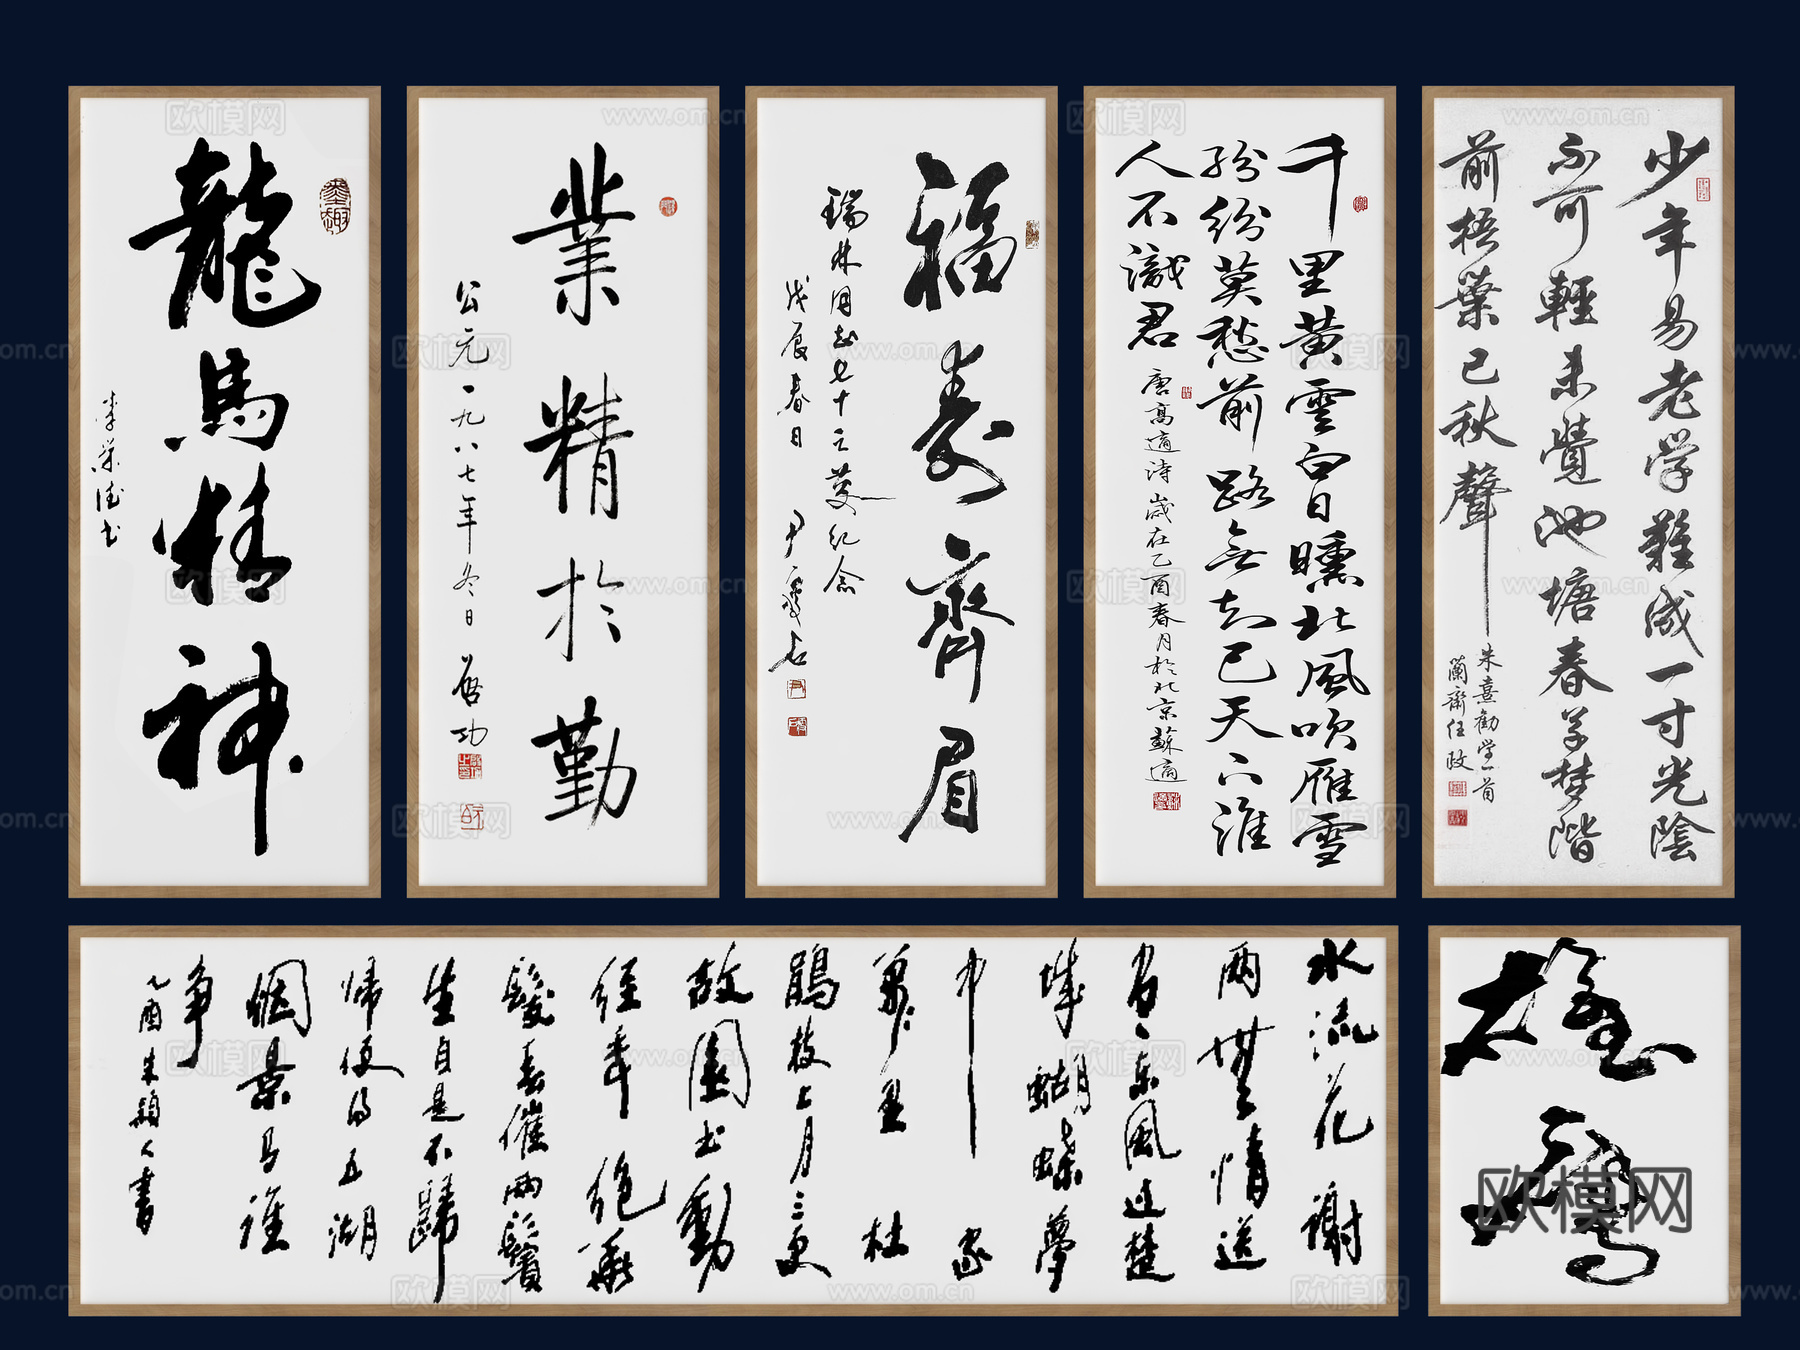 龍馬精神
李榮德书
墨趣
業精於勤
公元一九八七年冬日
启功
福壽齊眉
瑞林同志七十之慶纪念
戊辰春日
尹瘦石
千里黄雲白日曛北風吹雁雪
紛紛莫愁前路無知己天下誰
人不識君
唐高適诗 歲在乙酉春月於北京蘇適
少年易老学難成一寸光陰
不可輕未覺池塘春草梦階
前梧葉已秋聲
朱熹勸學一首
蘭齋任政
水流花谢
兩無情送
盡東風過楚
城蝴蝶夢
中家
萬里杜
鵑枝上月三更
故園书動
经年绝華
髮春催兩鬢
生自是不歸
歸便得五湖
烟景有誰
争
乙酉朱穎人書
雄鹰
欧模网
www.om.cn